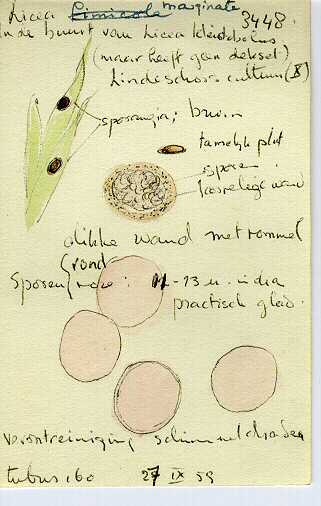 Licea limicola marginata
3448.
In de buurt van Licea kleistobolus
(maar heeft geen deksel)
Lindeschors cultuur (X)
sporangia; bruin
tamelijk plat
sporen
korrelige wand
dikke wand met rommel
(rond)
Sporen rose: 11-13 u. in dia
practisch glad.
verontreiniging schimmeldraden
tubus 160 27 IX 59